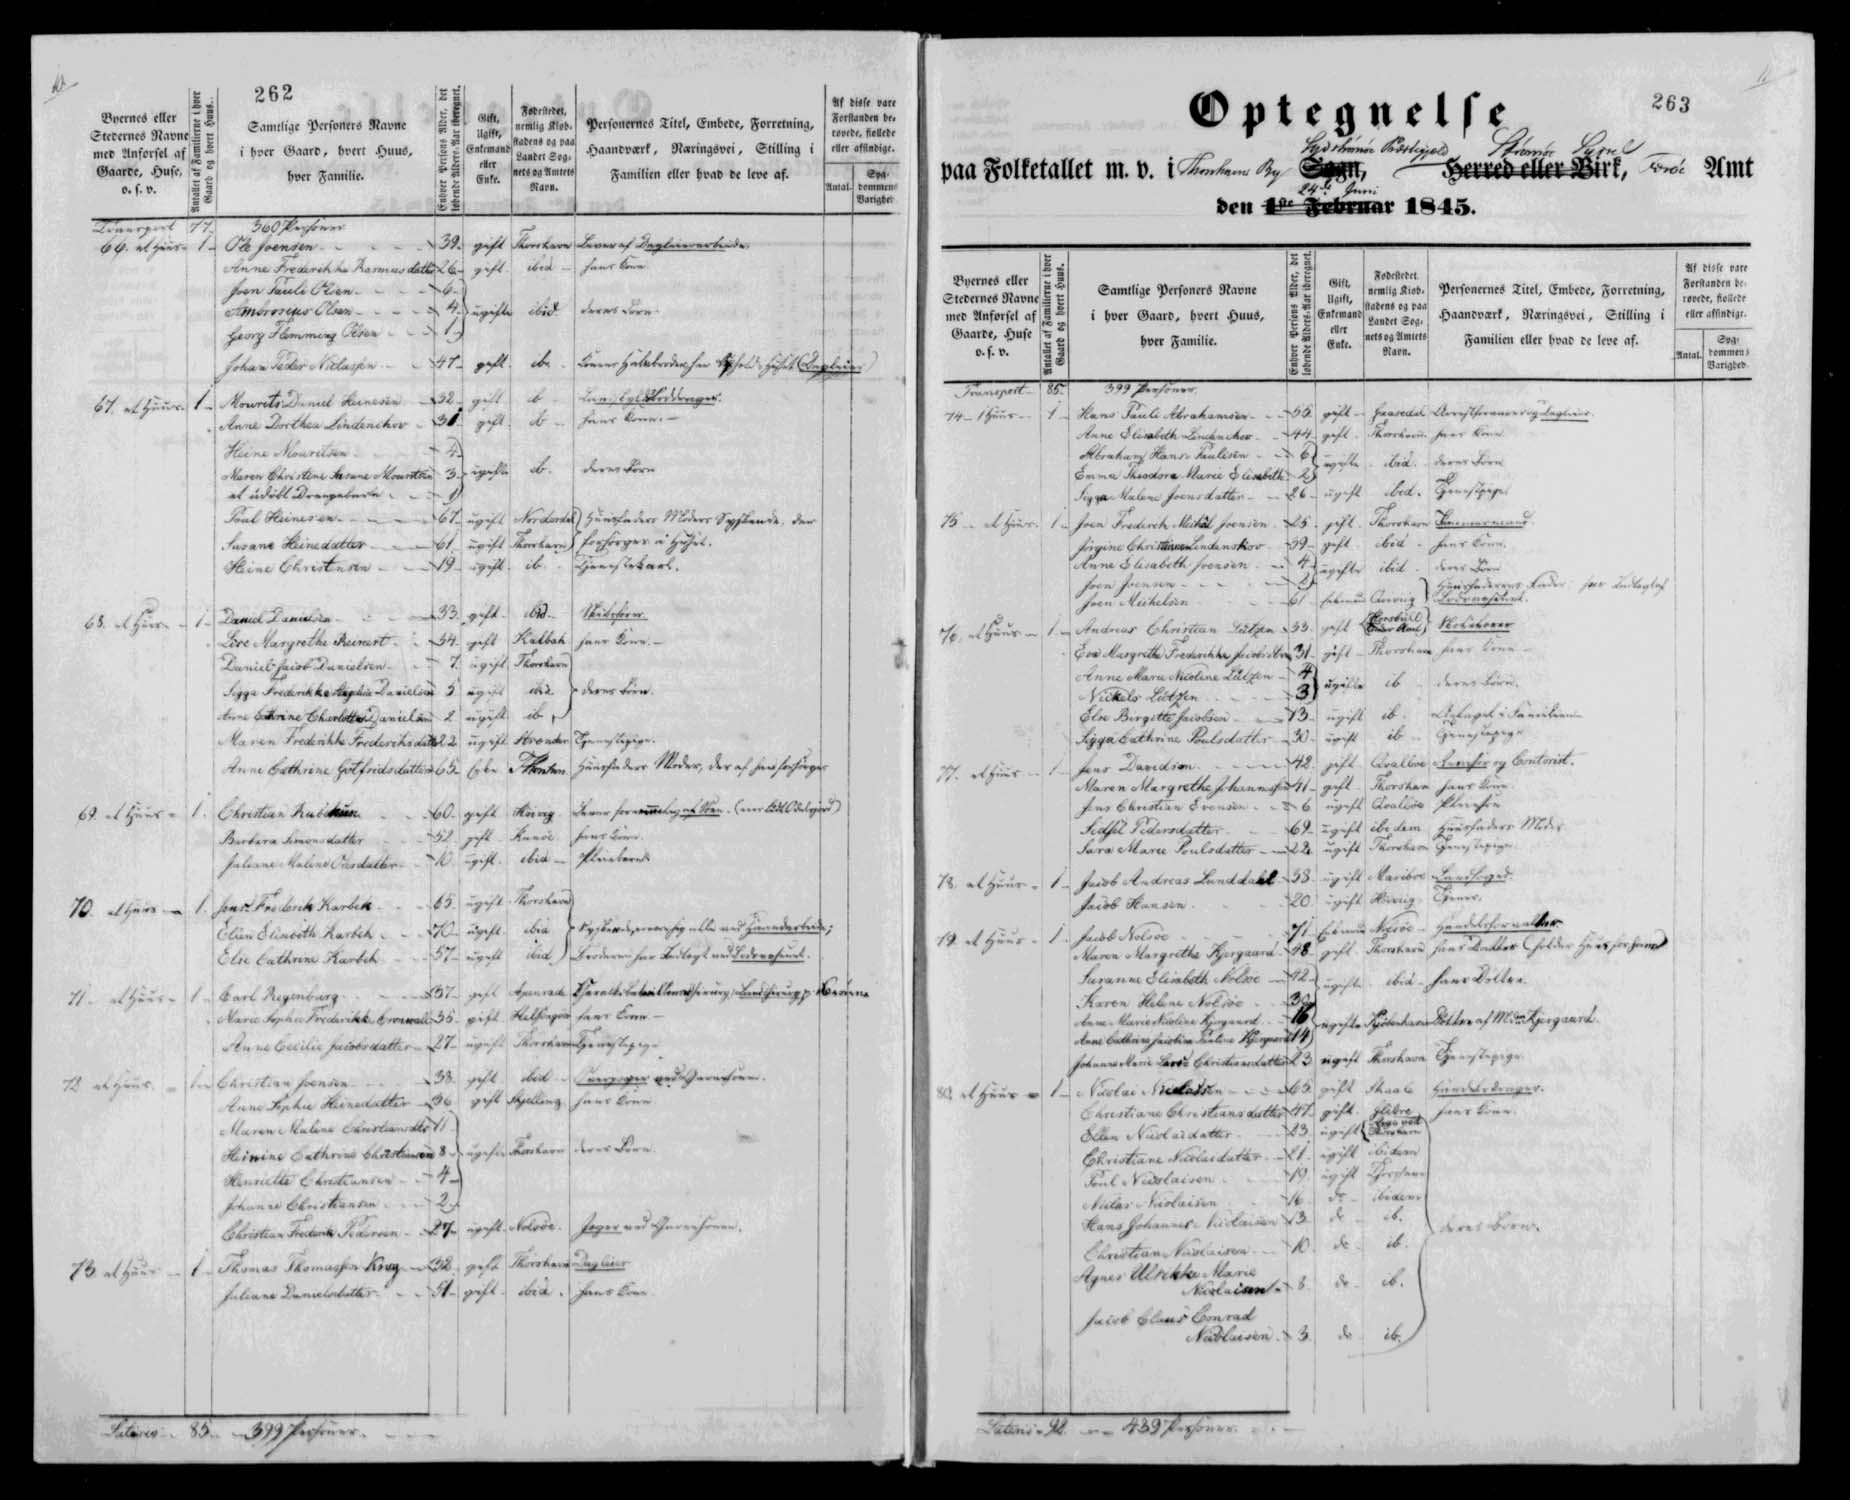 262
Byernes eller
Stedernes Navne
med Anførsel af
Gaarde, Huse,
o. s. v.
Antallet af Familierne i hver
Gaard og hvert Huus.
Samtlige Personers Navne
i hver Gaard, hvert Huus,
hver Familie.
Enhver Persons Alder, det
løbende Alders-Aar iberegnet.
Gift,
Ugift,
Enkemand
eller
Enke.
Fødestedet,
nemlig Kjøb-
stadens og paa
Landet Sog-
nets og Amtets
Navn.
Personernes Titel, Embede, Forretning,
Haandværk, Næringsvei, Stilling i
Familien eller hvad de leve af.
Af disse vare
Forstanden be-
røvede, fjollede
eller afsindige.
Antal.
Syg-
dommens
Varighed
Transport 77. 360 Personer
66. et Huus 1 Ole Joensen 39 gift Thorshavn Lever af Dagleierarbeide
Anne Frederikke Rasmusdatter 26 gift ibid hans Kone
Joen Pauli Olsen 6
Ambrosius Olsen 4 ugifte ibid deres Børn
Georg Flemming Olsen 1
Johan Peder Niclassen 47 gift ib.
67. et Huus 1 Mourits Daniel Heinesen 32 gift ib
Anne Dorthea Lindenskov 31 gift ib hans Kone
Heine Mouritsen 4
Maren Christene Susane Mouritsen 3 ugifte ib. deres Børn
et udøbt Drengebarn 1
Poul Heinesen 67 ugift Norderdal Huusfaders Moders Sydskende, der
Susane Heinedatter 61 ugift Thorshavn forsørges i Huset.
Heine Christensen 19 ugift ib. Tjenestekarl.
68. et Huus 1 Daniel Danielsen 33 gift ibid
Live Margrethe Reinert 34 gift Kalbak hans Kone
Daniel Jacob Danielsen 7 ugift Thorshavn
Sigga Frederikke Sophia Danielsen 5 ugift ibid deres Børn.
Anne Cathrine Charlotte Danielsen 2 ugift ib
Maren Frederikke Frederiksdatter 22 ugift Strender Tjenestepige.
Anne Cathrine Gotfredsdatter 65 Enke Thorshavn Huusfaders Moder, der af ham forsørges
69. et Huus 1. Christian Rubeksen 60 gift Hoivig
Barbara Simonsdatter 52 gift Kunøe hans Kone
Juliane Malene Olesdatter 10 ugift ibid Pleiebarn
70. et Huus 1. Jens Frederik Karbek 65 ugift Thorshavn
Ellen Elisabeth Karbek 70 ugift ibid
Else Cathrine Karbek 57 ugift ibid
71. et Huus 1 Carl Regenburg 37 gift Apenrade
Marie Sophie Frederikke Cronwall 35 gift Helsingøer hans Kone
Anne Cecilie Jacobsdatter 27 ugift Thorshavn Tjenestepige
72. et Huus 1 Christian Joensen 38 gift ibid
Anne Sophie Heinedatter 36 gift Skjelling hans Kone
Maren Malene Christiansdtr 11
Heinine Cathrine Christiansen 8 ugifte Thorshavn deres Børn.
Henriette Christiansen 4
Johanne Christiansen 2
Christian Frederik Pedersen 27 ugift Nolsøe. Jæger ved Garnisonen.
73. et Huus 1 Thomas Thomassen Krog 32 gift Thorshavn Dagleier
Juliane Danielsdatter 51 gift ibid hans Kone
Lateris 85 399 Personer
263
Optegnelse
paa Folketallet m. v. i Thorshavns By Sogn, Herred eller Birk, Færøe Amt
Sydstrømøe Præstegjeld Strømøe Syssel
24de Juni
den 1ste Februar 1845.
Byernes eller
Stedernes Navne
med Anførsel af
Gaarde, Huse
o. s. v.
Antallet af Familierne i hver
Gaard og hvert Huus.
Samtlige Personers Navne
i hver Gaard, hvert Huus,
hver Familie.
Enhver Persons Alder, det
løbende Alders-Aar iberegnet.
Gift,
Ugift,
Enkemand
eller
Enke.
Fødestedet,
nemlig Kjøb-
stadens og paa
Landet Sog-
nets og Amtets
Navn.
Personernes Titel, Embede, Forretning,
Haandværk, Næringsvei, Stilling i
Familien eller hvad de leve af.
Af disse vare
Forstanden be-
røvede, fjollede
eller afsindige.
Antal.
Syg-
dommens
Varighed.
Transport 85 399 Personer
74 1 Huus 1 Hans Pauli Abrahamsen 55 gift Gaasedal Arrestforvarer og Dagleier.
Anne Elisabeth Lindenskov 44 gift Thorshavn hans Kone
Abraham Hans Paulisen 6 ugifte ibid. deres Børn
Emma Theodora Marie Elisabeth 2
Sigga Malene Joensdatter 26 ugift ibid. Tjenestepige
75 et Huus 1 Joen Frederik Michal Joensen 25 gift Thorshavn Tømmermand.
Jørgine Christiane Lindenskov 39 gift ibid hans Kone.
Anne Elisabeth Joensen 4 ugifte ibid deres Børn
Joen Joensen 2
Joen Michelsen 61 Enkemand Husfaderens Fader
76. et Huus 1 Andreas Christian Lützen 33 gift
Eva Margrethe Frederikke Jacobsdtr 31 gift Thorshavn hans Kone
Anne Marie Nicoline Lützen 4 ugifte ib deres Børn.
Nickels Lützen 3
Else Birgitte Jacobsen 13 ugift ib. Optaget i Familien
Sigga Cathrine Poulsdatter 30 ugift ib Tjenestepige
77. et Huus 1 Jens Davidsen 42 gift Qvalbøe
Maren Margrethe Johannessen 41 gift Thorshavn hans Kone
Jens Christian Evensen 6 ugift Qvalbøe Pleiesøn
Sidsel Pedersdatter 69 ugift ibidem Huusfaders Moder
Sara Marie Poulsdatter 22 ugift Thorshavn Tjenestepige
78. et Huus 1 Jacob Andreas Lunddahl 38 ugift Maribo Landfoged.
Jacob Hansen 20 ugift Hoivig Tjener.
79. et Huus 1 Jacob Nolsøe 71 Enkemand Nolsøe Handelsforvalter
Maren Margrethe Kjergaard 48 gift Thorshavn hans Datter (holder Huus for ham)
Susanne Elisabeth Nolsøe 42 ugifte ibid hans Døttre
Karen Helene Nolsøe 39
Anne Marie Nicoline Kjergaard 16 ugifte Kjøbenhavn Døttre af Mdm Kjergaard.
Anne Cathrine Jacobine Pauline Kjergaard 14
Johanne Marie Christiansdatter 23 ugift Thorshavn Tjenestepige
80. et Huus 1 Nicolai Niclassen 65 gift Skaale
Christiane Christiansdatter 47 gift hans Kone.
Ellen Nicolaidatter 23 ugift
Christiane Nicolaidatter 21 ugift ibidem
Poul Nicolaisen 19 ugift Thorshavn
Niclas Nicolaisen 16 do ibidem
Hans Johannes Nicolaisen 13 do ib. deres Børn.
Christian Nicolaisen 10 do ib.
Agnes Ulrikke Marie
Nicolaisen 8 do ib.
Jacob Claus Conrad
Nicolaisen 3 do ib.
Lateris 92 439 Personer